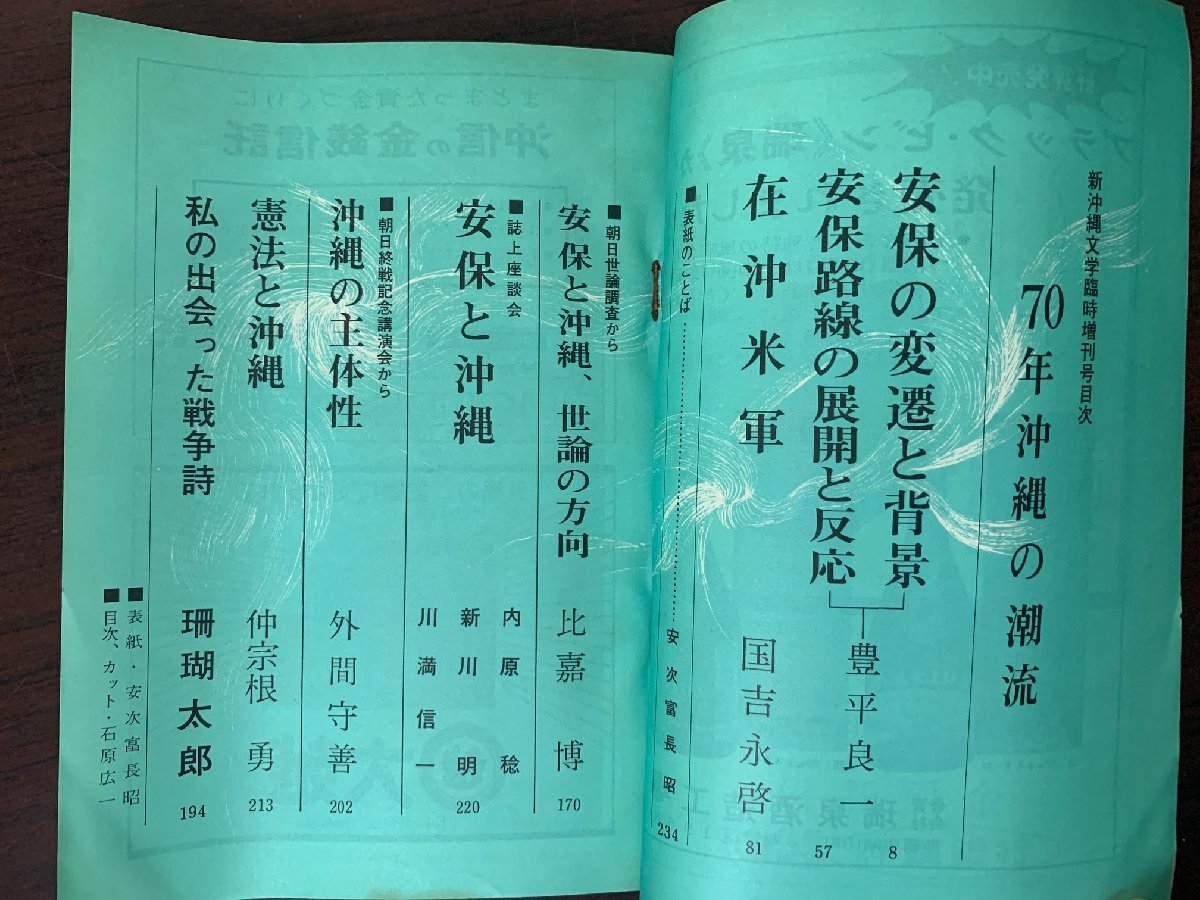 新沖縄文学臨時増刊号目次
70年沖縄の潮流
安保の変遷と背景
8
安保路線の展開と反応
豊平良一
57
在沖米軍
国吉永啓
81
■表紙のことば
安次富長昭
234
■朝日世論調査から
安保と沖縄、世論の方向
比嘉博
170
■誌上座談会
安保と沖縄
内原稔
新川明
川満信一
220
■朝日終戦記念講演会から
沖縄の主体性
外間守善
202
憲法と沖縄
仲宗根勇
213
私の出会った戦争詩
珊瑚太郎
194
■表紙・安次富長昭
■目次、カット・石原広一
まとまった資金づくりに
沖信の金銭信託